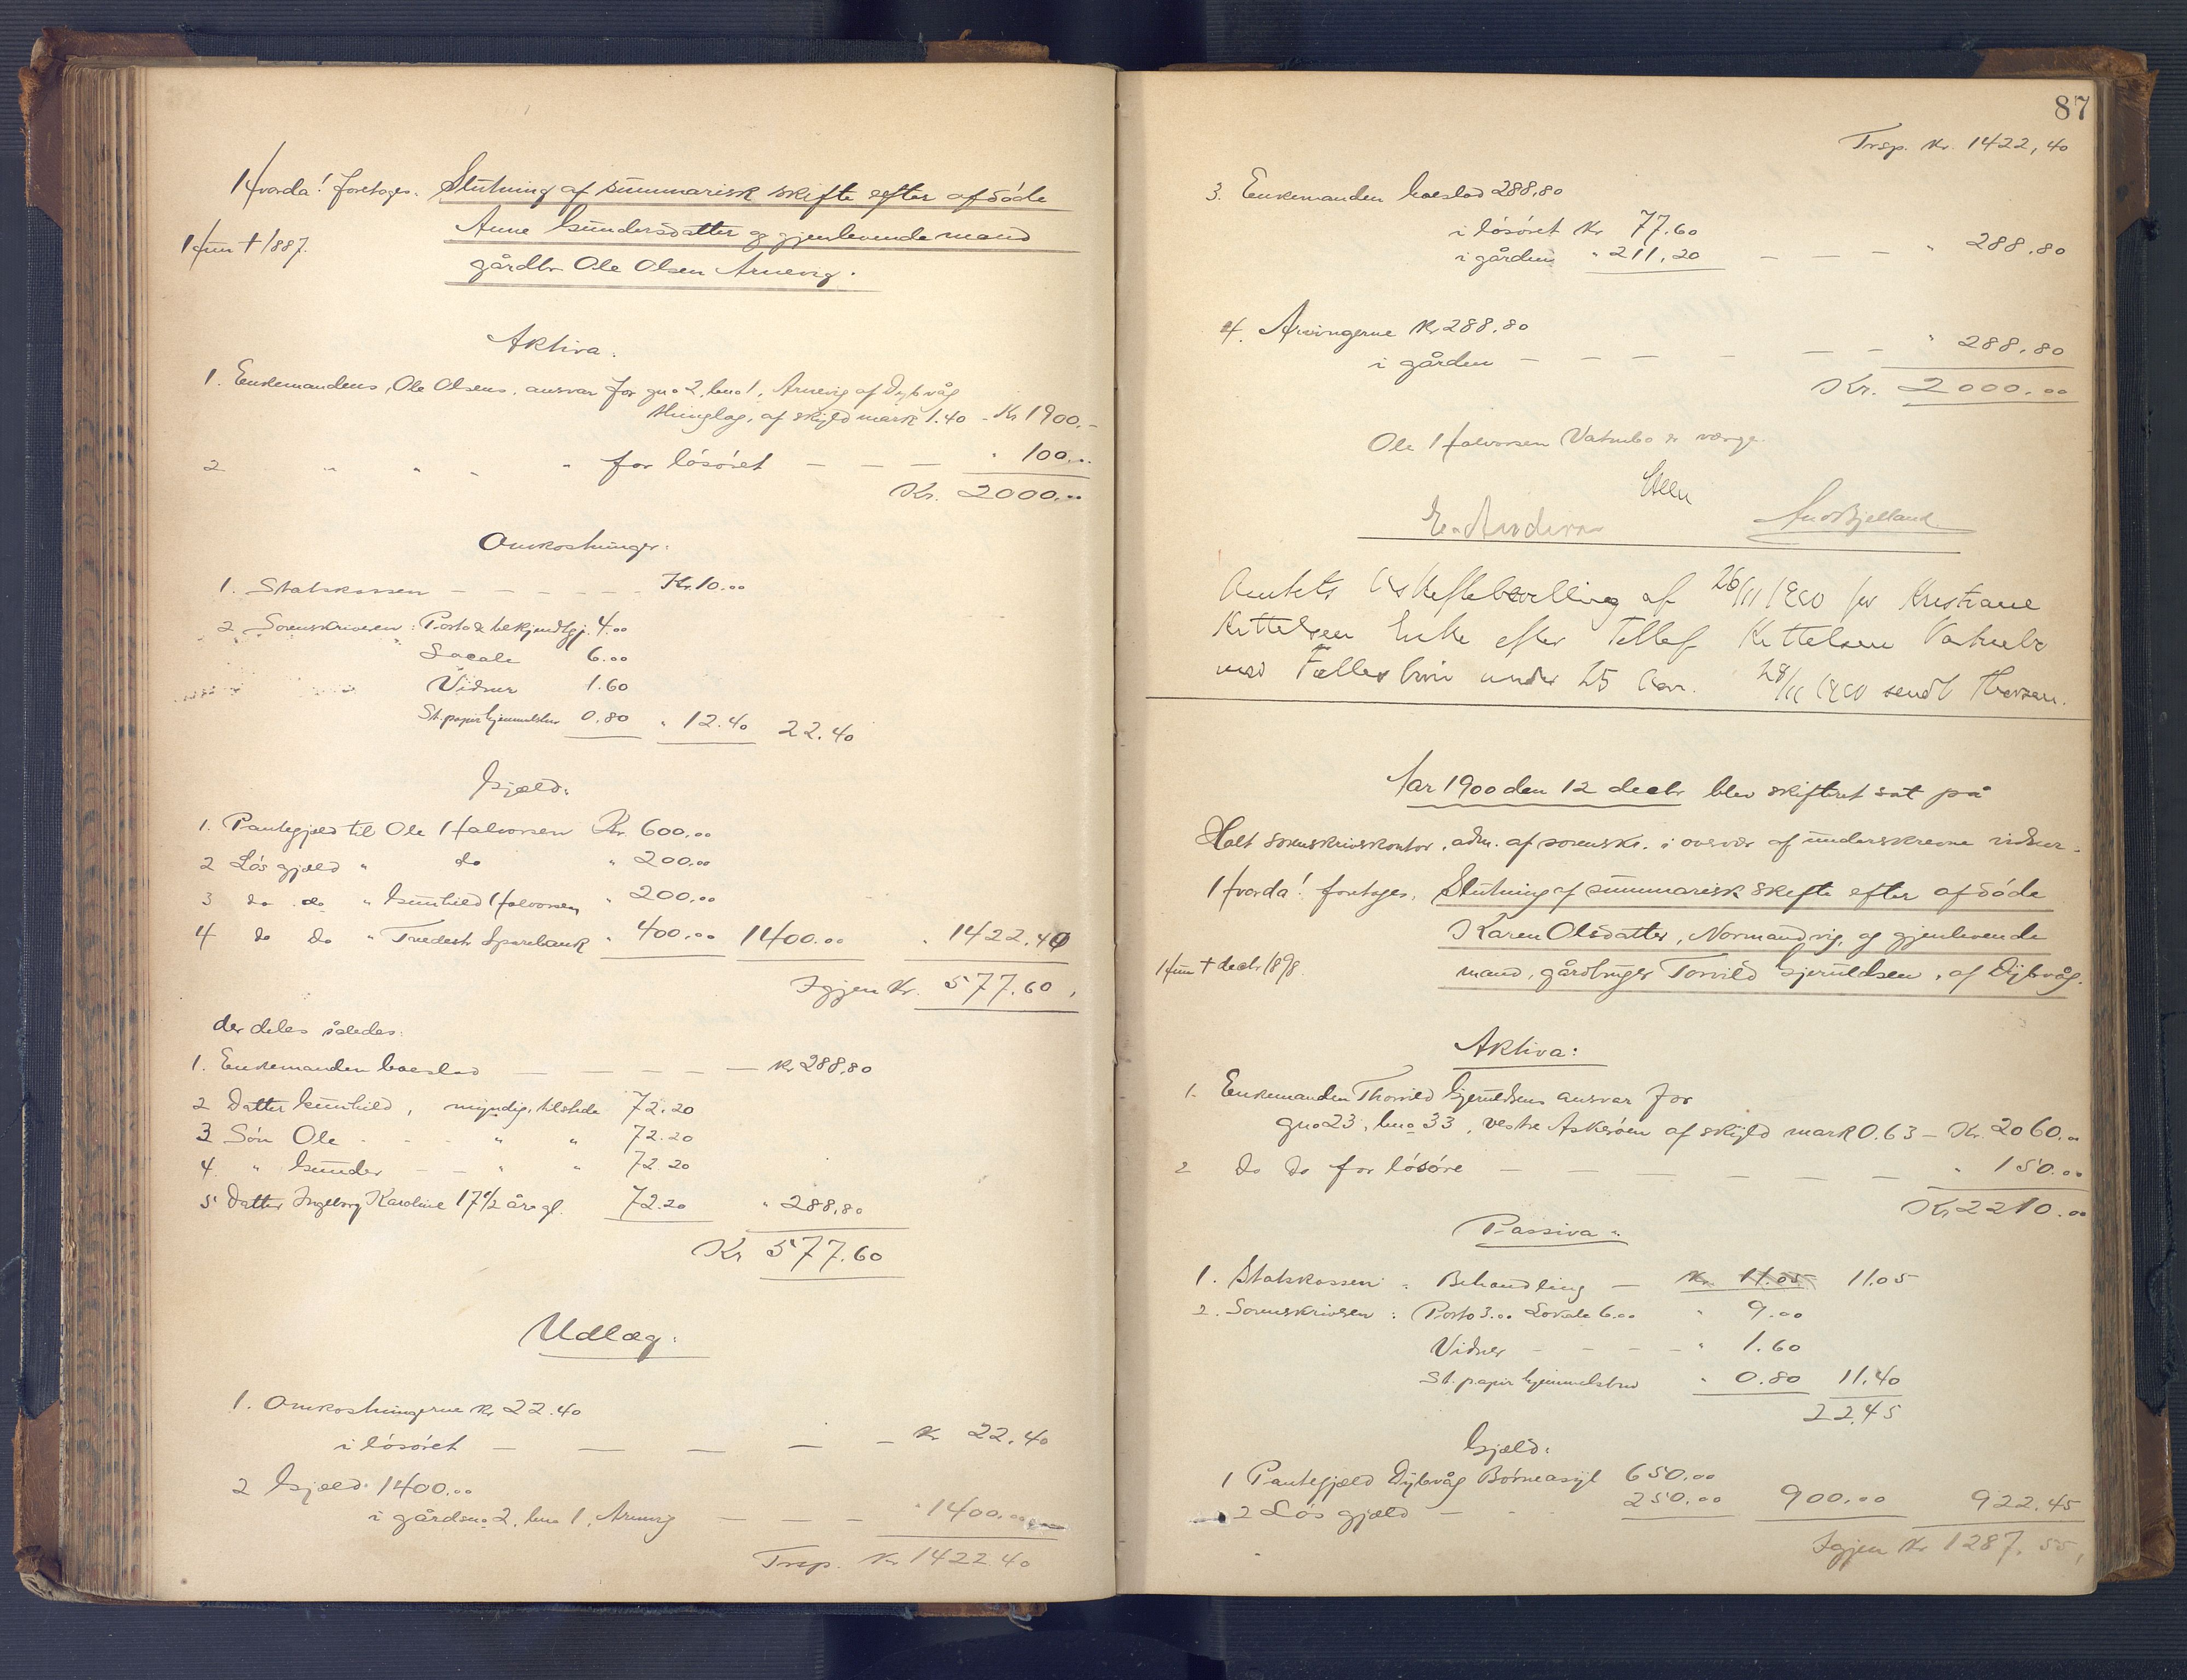 Hvorda! foretoges. Slutning af summarisk skifte efter afdöde
Anne Gundersdatter og gjenlevende mand
Hun † 1887.
gårdbr Ole Olsen Arnevig.
Aktiva.
1. Enkemandens, Ole Olsens, ansvar for gno 2, bno 1, Arnevig af Dybvåg
thinglag, af skyld mark 1.40 - Kr 1900.-
2 " " " " for lösöret — — — " 100.00
Kr. 2000.00
Omkostninger:
1. Statskassen - - - - - - Kr. 10.00
2 Sorenskriveren: Porto & bekjendtgj. 4.00
" Locale 6.00
Vidner 1.60
St. papir hjemmelsbrev 0.80 " 12.40 22.40
Gjæld:
1. Pantegjæld til Ole Halvorsen Kr. 600.00
2 Lös gjæld " do " 200.00
3 do do " Gunhild Halvorsen " 200.00
4 do do " Tvedestr. Sparebank " 400.00 1400.00 " 1422.40
Igjen Kr. 577.60,
der deles således:
1. Enkemanden boeslod — — — — — Kr 288.80
2 Datter Gunhild, myndig, tilstede 72.20
3 Sön Ole - - - " " 72.20
4. " Gunder - - " " 72.20
5 Datter Ingeborg Karoline 17 1/2 år gl. 72.20 " 288.80
Kr 577.60
Udlæg:
1. Omkostningerne Kr 22.40
i lösöret — — — — — Kr 22.40
2 Gjæld 1400.00
i gården 2, bno 1, Arnevig — — — " 1400.00
Trsp. Kr 1422.40
87
Trsp. Kr. 1422,40
3. Enkemanden boeslod 288.80
i lösöret Kr 77.60
i gården " 211.20 — — — " 288.80
4. Arvingerne Kr 288.80
i gården — — — — — — " 288.80
Kr. 2000.00
Ole Halvorsen Vatnebo er værge.
Steen
And Bjelland
Amtets Uskiftebevilling af 26/11 1900 for Kristiane
Kittelsen Enke efter Tellef Kittelsen Vatnebo
med Fælles börn under 25 Aar. 28/11 1900 sendt
Aar 1900 den 12 decbr blev skifteret sat på
Holt sorenskriverkontor, adm. af sorenskr. i overvær af underskrevne vidner.
Hvorda! foretoges, Slutning af summarisk skifte efter afdöde
Karen Olsdatter, Normandvig, og gjenlevende
Hun † decbr 1898.
mand, gårdbruger Torvild Gjeruldsen, af Dybvåg.
Aktiva:
1. Enkemanden Thorvild Gjeruldsens ansvar for
gno 23, bno 33, vestre Askeröen af skyld mark 0.63 - Kr. 2060.00
2 do do for lösöre — — — — — — " 150.00
Kr 2210.00
Passiva:
1. Statskassen: Behandling — Kr. 11.05 11.05
2. Sorenskriveren: Porto 3.00 Lokale 6.00 " 9.00
Vidner - - - - " 1.60
St. papir hjemmelsbrev " 0.80 11.40
22.45
Gjæld:
1 Pantegjæld Dybvåg Börneasyl 650.00
2 Lös gjæld — - - 250.00 900.00 922.45
Igjen Kr 1287.55,